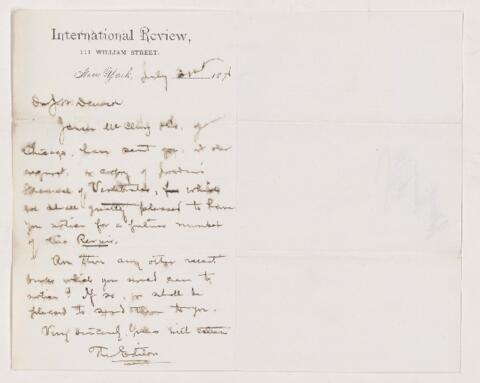 International Review,
111 WILLIAM STREET.
New York, July 21st 187
Dr J. W. Dawson
James McClurg & Co. of
Chicago, have sent you, at our
request, a copy of Jordan's
Manual of Vertebrates, which
we shall be greatly pleased to have
you notice for a future number
of the Review.
Are there any other recent
books which you would care to
notice? If so, we shall be
pleased to send them to you.
Very sincerely Yours
The Editors